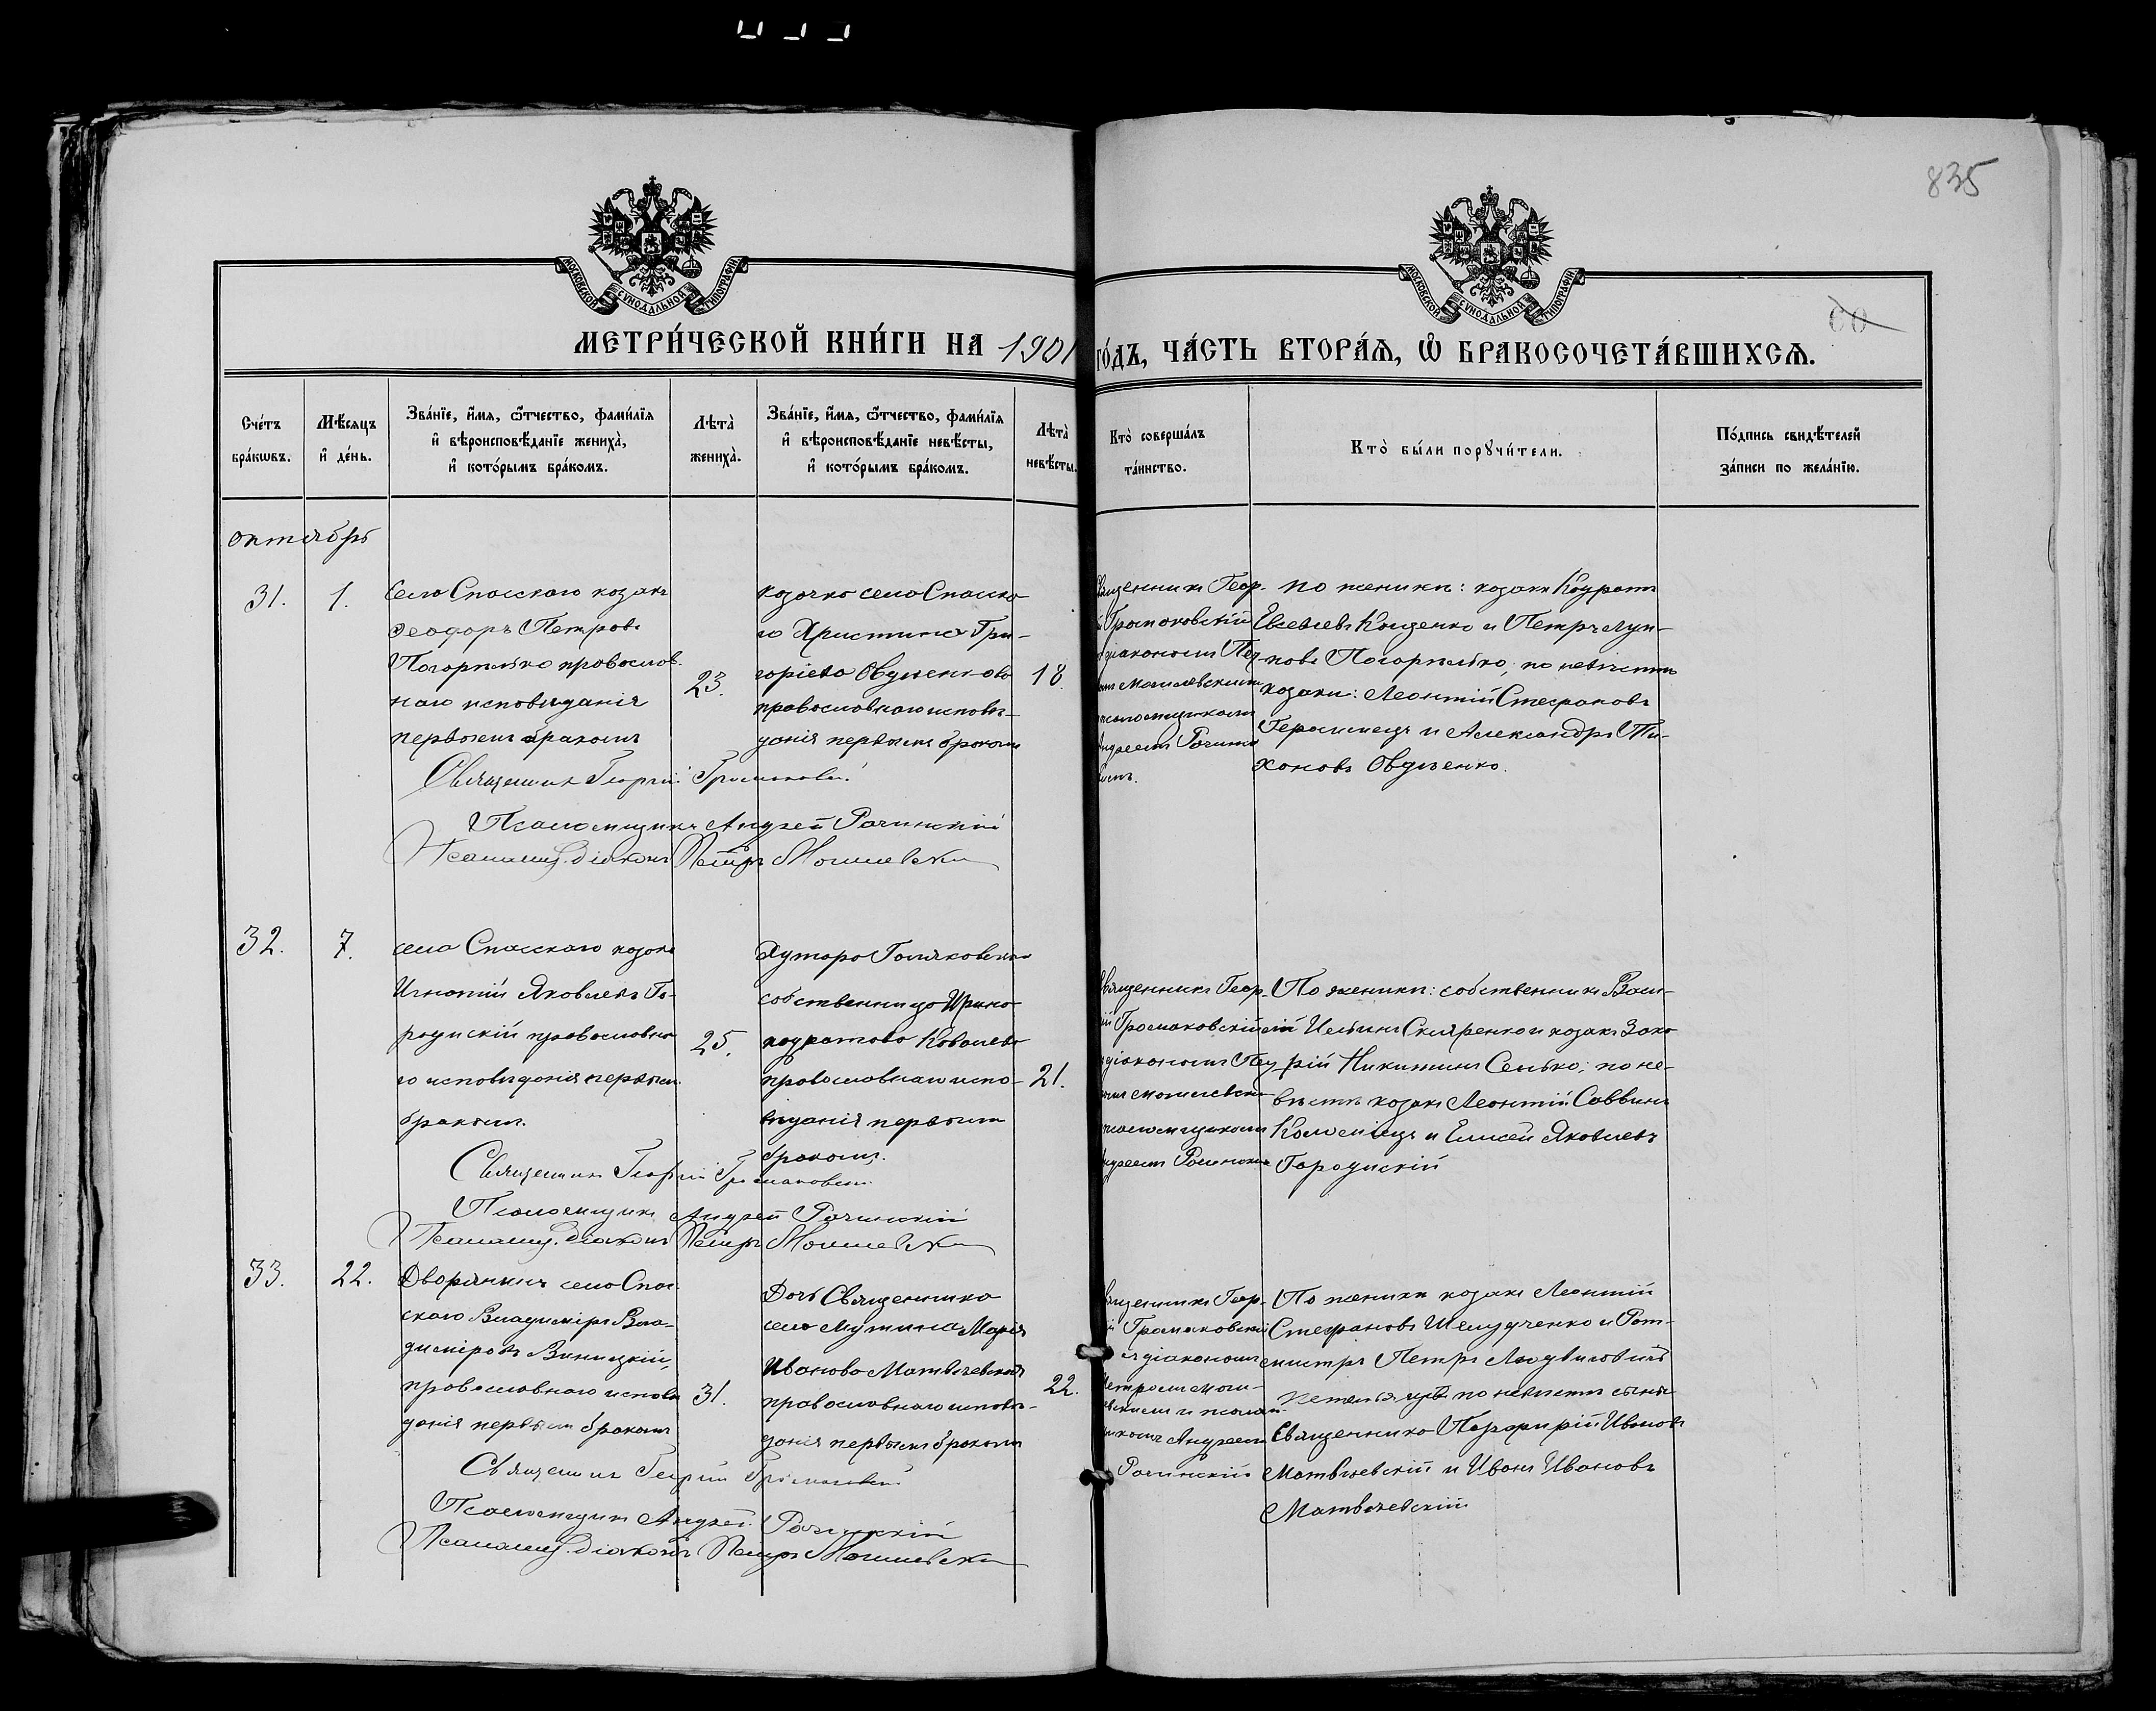 835
МОСКОВСКОЙ СУНОДАЛЬНОЙ ТИПОГРАФІИ
МОСКОВСКОЙ СУНОДАЛЬНОЙ ТИПОГРАФІИ
60
МЕТРИ́ЧЕСКОЙ КНИ́ГИ НА 1901 ГО́ДЪ, ЧА́СТЬ ВТОРА́Ѧ, Ѽ БРАКОСОЧЕТА́ВШИХСѦ.
Сче́тъ бра́кѡвъ.
Мѣ́сяцъ и҆ де́нь.
Зва́нїе, и҆́мя, ѻ҆́тчество, фами́лїя
и҆ вѣроисповѣ́данїе жениха̀,
и҆ кото́рымъ бра́комъ.
Лѣта̀ жениха̀.
Зва́нїе, и҆́мя, ѻ҆́тчество, фами́лїя
и҆ вѣроисповѣ́данїе невѣ́сты,
и҆ кото́рымъ бра́комъ.
Лѣта̀ невѣ́сты.
Кто̀ соверша́лъ та́инство.
Кто̀ бы́ли порꙋчи́тели.
По́дпись свидѣ́телей за́писи по жела́нїю.
октябрь
31.
1.
села Спасскаго козакъ
Ѳеодоръ Петровъ
Погорѣлко православ-
наго исповѣданія
первымъ бракомъ
23.
козачка села Спасска-
го Христина Гри-
горіева
православнаго исповѣ-
данія первымъ бракомъ
18.
священникъ Геор-
Громаковскій
діакономъ Пет-
Могилевскимъ
псаломщикомъ
Андреемъ Рачин
скимъ.
по женихѣ: козаки Кодратъ
Евсевіевъ Кощенко и Петръ Луп-
повъ Погорѣлко; по невѣстѣ
козаки: Леонтій Стефановъ
Герасимецъ и Александръ Ти-
хоновъ
Священникъ Георгій Громаковскій
Псаломщикъ Андрей Рачинскій
Псаломщ. діаконъ Петръ Могилевскій
32.
7.
села Спасскаго козакъ
Игнатій Яковлевъ Го-
родискій православна-
го исповѣданія первымъ
бракомъ.
25.
Хутора
собственница Ирина
Кодратова Ковалева
православнаго испо-
вѣданія первымъ
бракомъ.
21.
священникъ Геор-
ій Громаковскій
діакономъ Пет
Могилевски
псаломщикомъ
Андреемъ Рачинскимъ
По женихѣ: собственникъ Васи-
лій Ильинъ Скляренко и козакъ Заха-
рій Никитинъ Сенько; по не-
вѣстѣ козакъ Леонтій Саввинъ
Коломіецъ и Елисей Яковлевъ
Городискій
Священникъ Георгій Громаковскій
Псаломщикъ Андрей Рачинскій
Псаломщ. діаконъ Петръ Могилевскій
33.
22.
Дворянинъ села Спас-
скаго Владиміръ Вла-
диміровъ Виницкій,
православнаго исповѣ-
данія первымъ бракомъ
31.
Дочь Священника
села Мутина Марія
Иванова Матвѣевская
православнаго исповѣ-
данія первымъ бракомъ
22.
священникъ Геор-
ій Громаковскій
съ діакономъ
Петромъ Моги-
левскимъ и псалом-
щикомъ Андреемъ
Рачинскій
По женихѣ козакъ Леонтій
Стефановъ Шелудченко и Рот-
мистръ Петръ Людвиговичъ
по невѣстѣ сынъ
Священника Порфирій Ивановъ
Матвѣевскій и Иванъ Ивановъ
Матвѣевскій
Священникъ Георгій Громаковскій
Псаломщикъ Андрей Рачинскій
Псаломщ. діаконъ Петръ Могилевскій